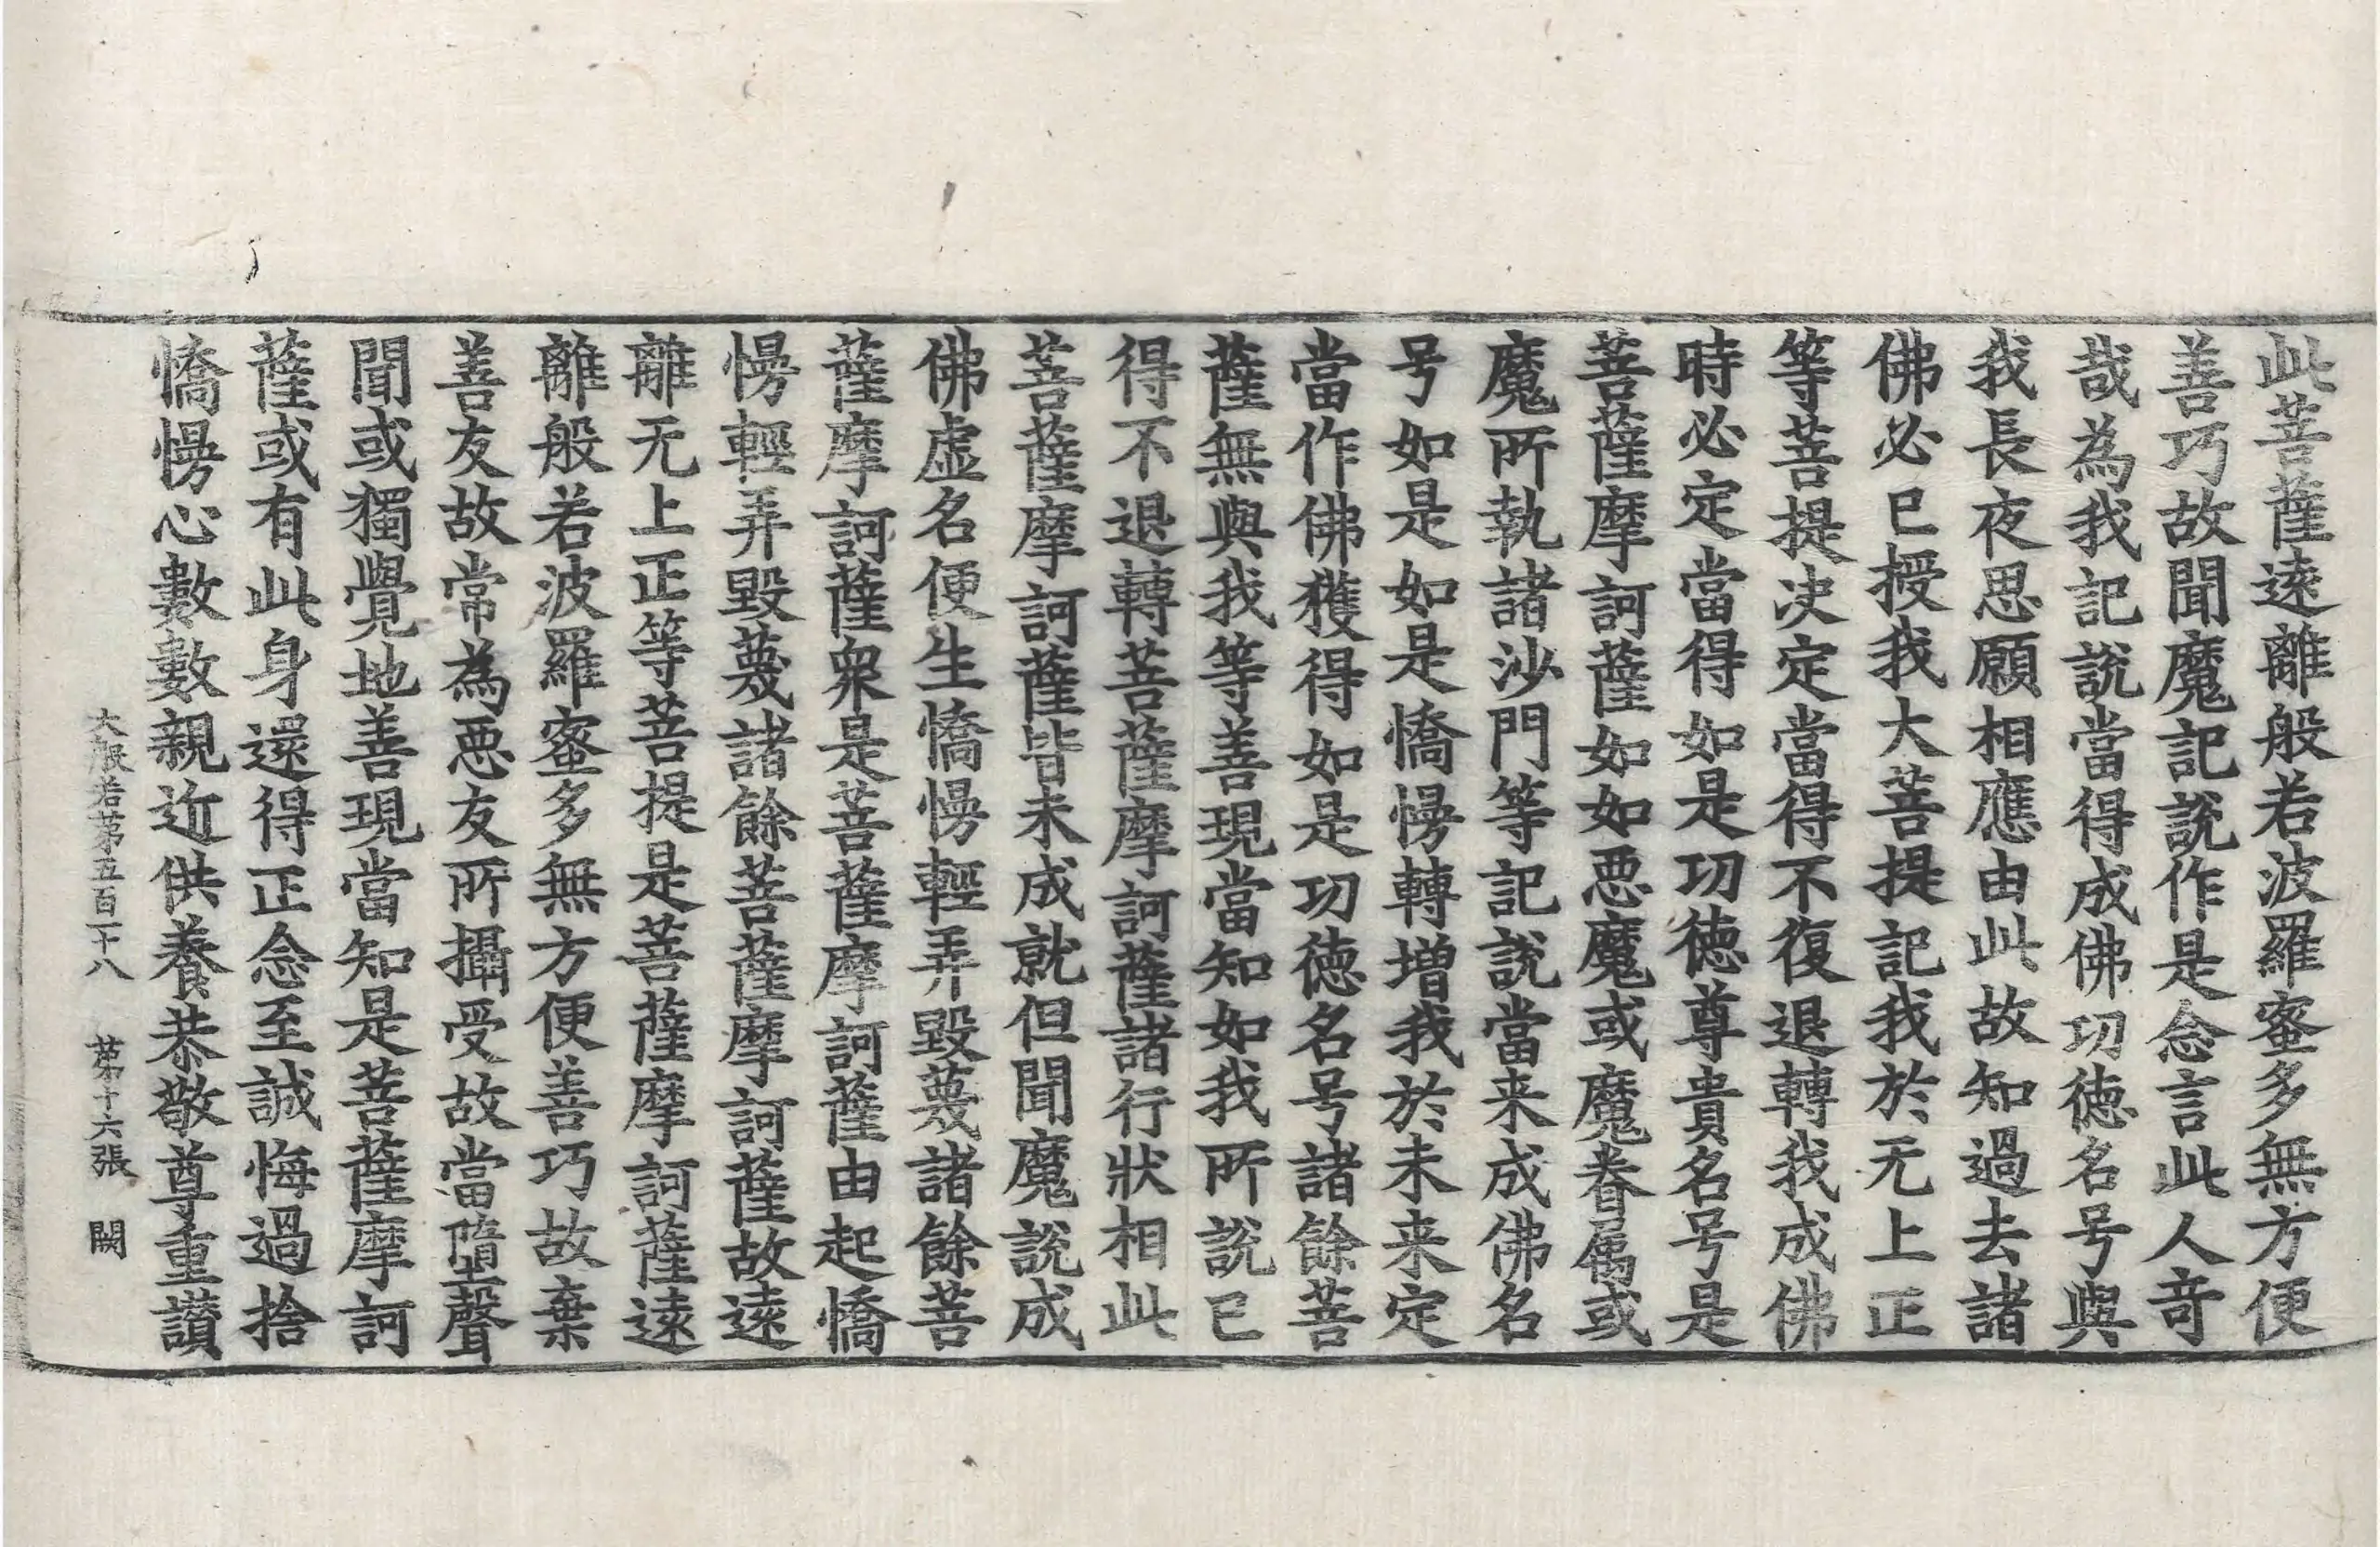 此菩薩遠離般若波羅蜜多無方便
善巧故聞魔記說作是念言此人奇
哉為我記說當得成佛功徳名号與
我長夜思願相應由此故知過去諸
佛必已授我大菩提記我於无上正
等菩提决定當得不復退轉我成佛
時必定當得如是功徳尊貴名号是
菩薩摩訶薩如如悪魔或魔眷属或
魔所執諸沙門等記說當来成佛名
号如是如是憍慢轉增我於未来定
當作佛獲得如是功徳名号諸餘菩
薩無與我等善現當知如我所說已
得不退轉菩薩摩訶薩諸行狀相此
菩薩摩訶薩皆未成就但聞魔說成
佛虛名便生憍慢輕弄毀蔑諸餘菩
薩摩訶薩衆是菩薩摩訶薩由起憍
慢輕弄毀蔑諸餘菩薩摩訶薩故遠
離无上正等菩提是菩薩摩訶薩遠
離般若波羅蜜多無方便善巧故棄
善友故常為悪友所攝受故當墮聲
聞或獨覺地善現當知是菩薩摩訶
薩或有此身還得正念至誠悔過捨
憍慢心數數親近供養恭敬尊重讃
大般若苐五百一十八　苐十六張　闕